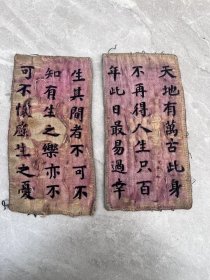 天地有萬古此身
不再得人生只百
年此日最易過幸
生其間者不可不
知有生之樂亦不
可不懷虛生之憂